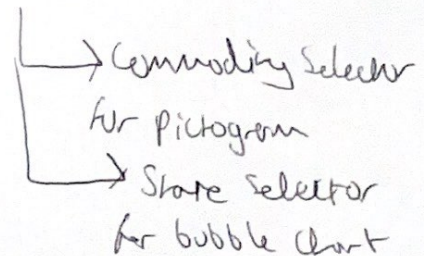 Commodity Selector
for pictogram
State Selector
for bubble chart